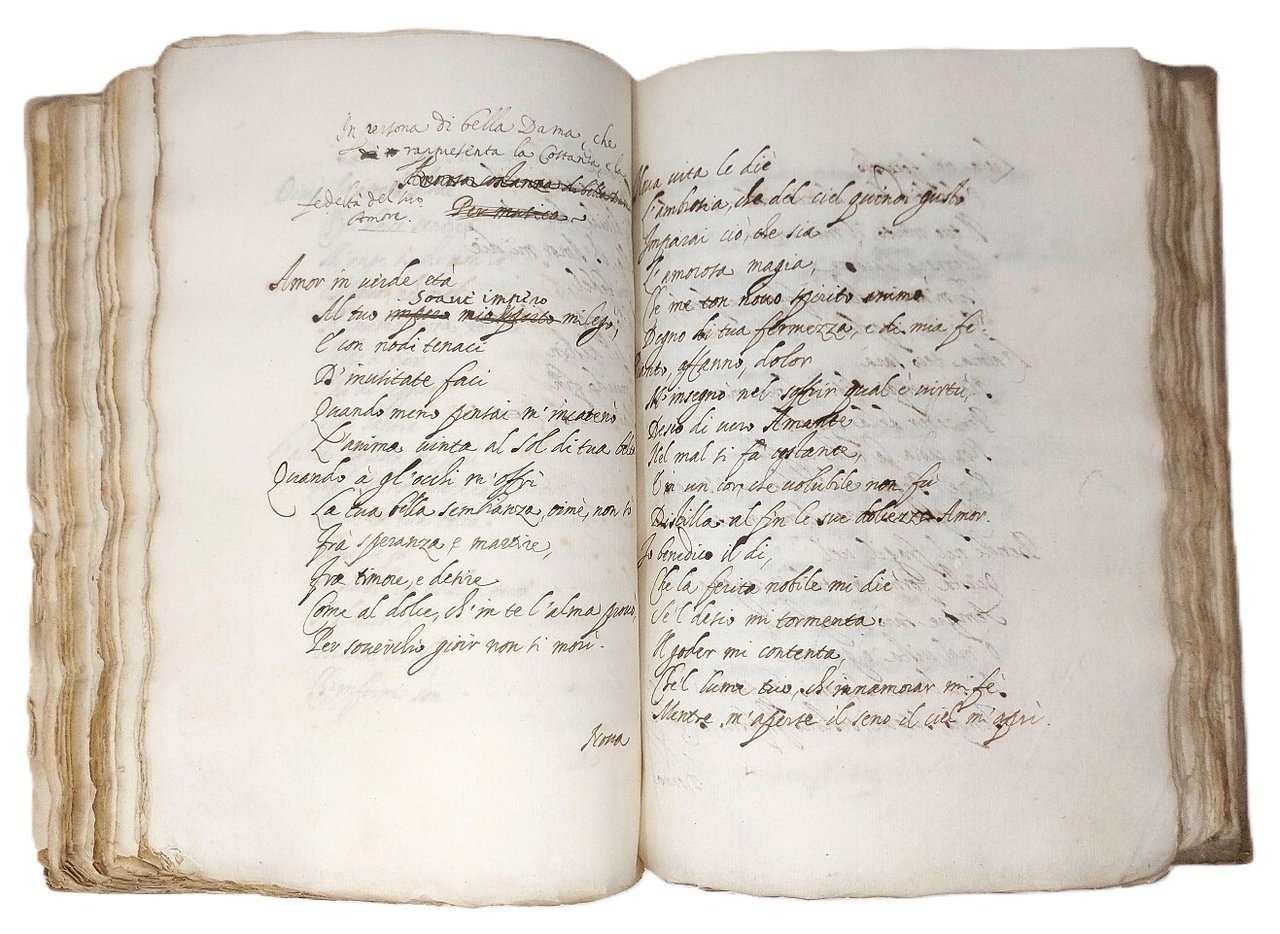 In persona di bella Dama, che
rappresenta la Costanza, e la
costanza di bella
fedeltà del suo
Amore.
Per musica
Amor in verde età
Soavi impero
Al tuo impero mio spirto mi legò,
E con nodi tenaci
D'inusitate faci
Quando meno pensai m'incatenò
L'anima vinta al sol di tua
Quando à gl'occhi m'offrì
La tua bella sembianza, oimè, non sò
Frà speranza, e martire,
Frà timore, e desire
Come al dolce, ch'in te l'alma provò,
Per soverchio gioir non si morì.
Nova
Nova vita le diè
L'ambrosia, che del ciel quinci gustò
Imparai ciò, che sia
L'amorosa magia,
Che me con novo spirito animò
Degno di tua fermezza, e di mia fè.
Pianto, affanno, dolor
M'insegnò nel soffrir qual è virtù,
Desio di vero Amante
Nel mal si fà costante,
E in un cor, che volubile non fù
Distilla al fin le sue dolcezze Amor.
Io benedico il dì,
Che la ferita nobile mi diè
Se'l desio mi tormenta.
Il goder mi contenta,
Che'l lume tuo, ch'innamorar mi fè.
Mentre m'aperse il seno il ciel m'aprì.